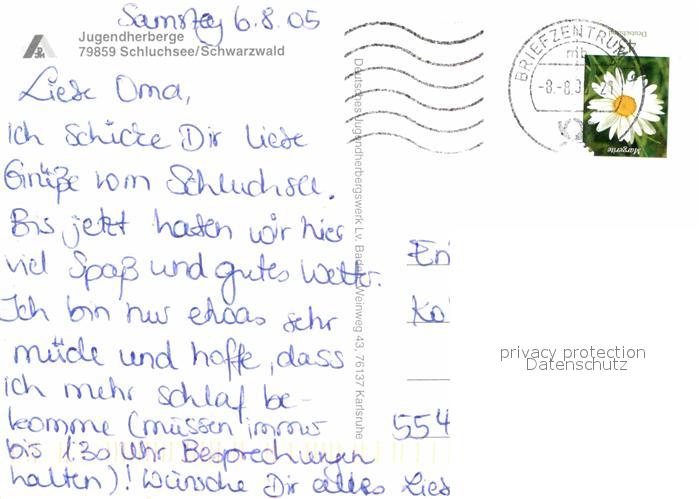 Samstag 6.8.05
Jugendherberge
79859 Schluchsee/Schwarzwald
Liebe Oma,
ich schicke Dir liebe
Grüße vom Schluchsee.
Bis jetzt hatten wir hier
viel Spaß und gutes Wetter.
Ich bin nur etwas sehr
müde und hoffe, dass
ich mehr schlaf be-
komme (müssen immer
bis 1:30 Uhr Besprechungen
halten)! Wünsche Dir alles Liebe
Deutsches Jugendherbergswerk Lv. Baden, Weinweg 43, 76137 Karlsruhe
BRIEFZENTRUM
mb
-8.-8.0
Deutschland
Margerite
554
privacy protection
Datenschutz